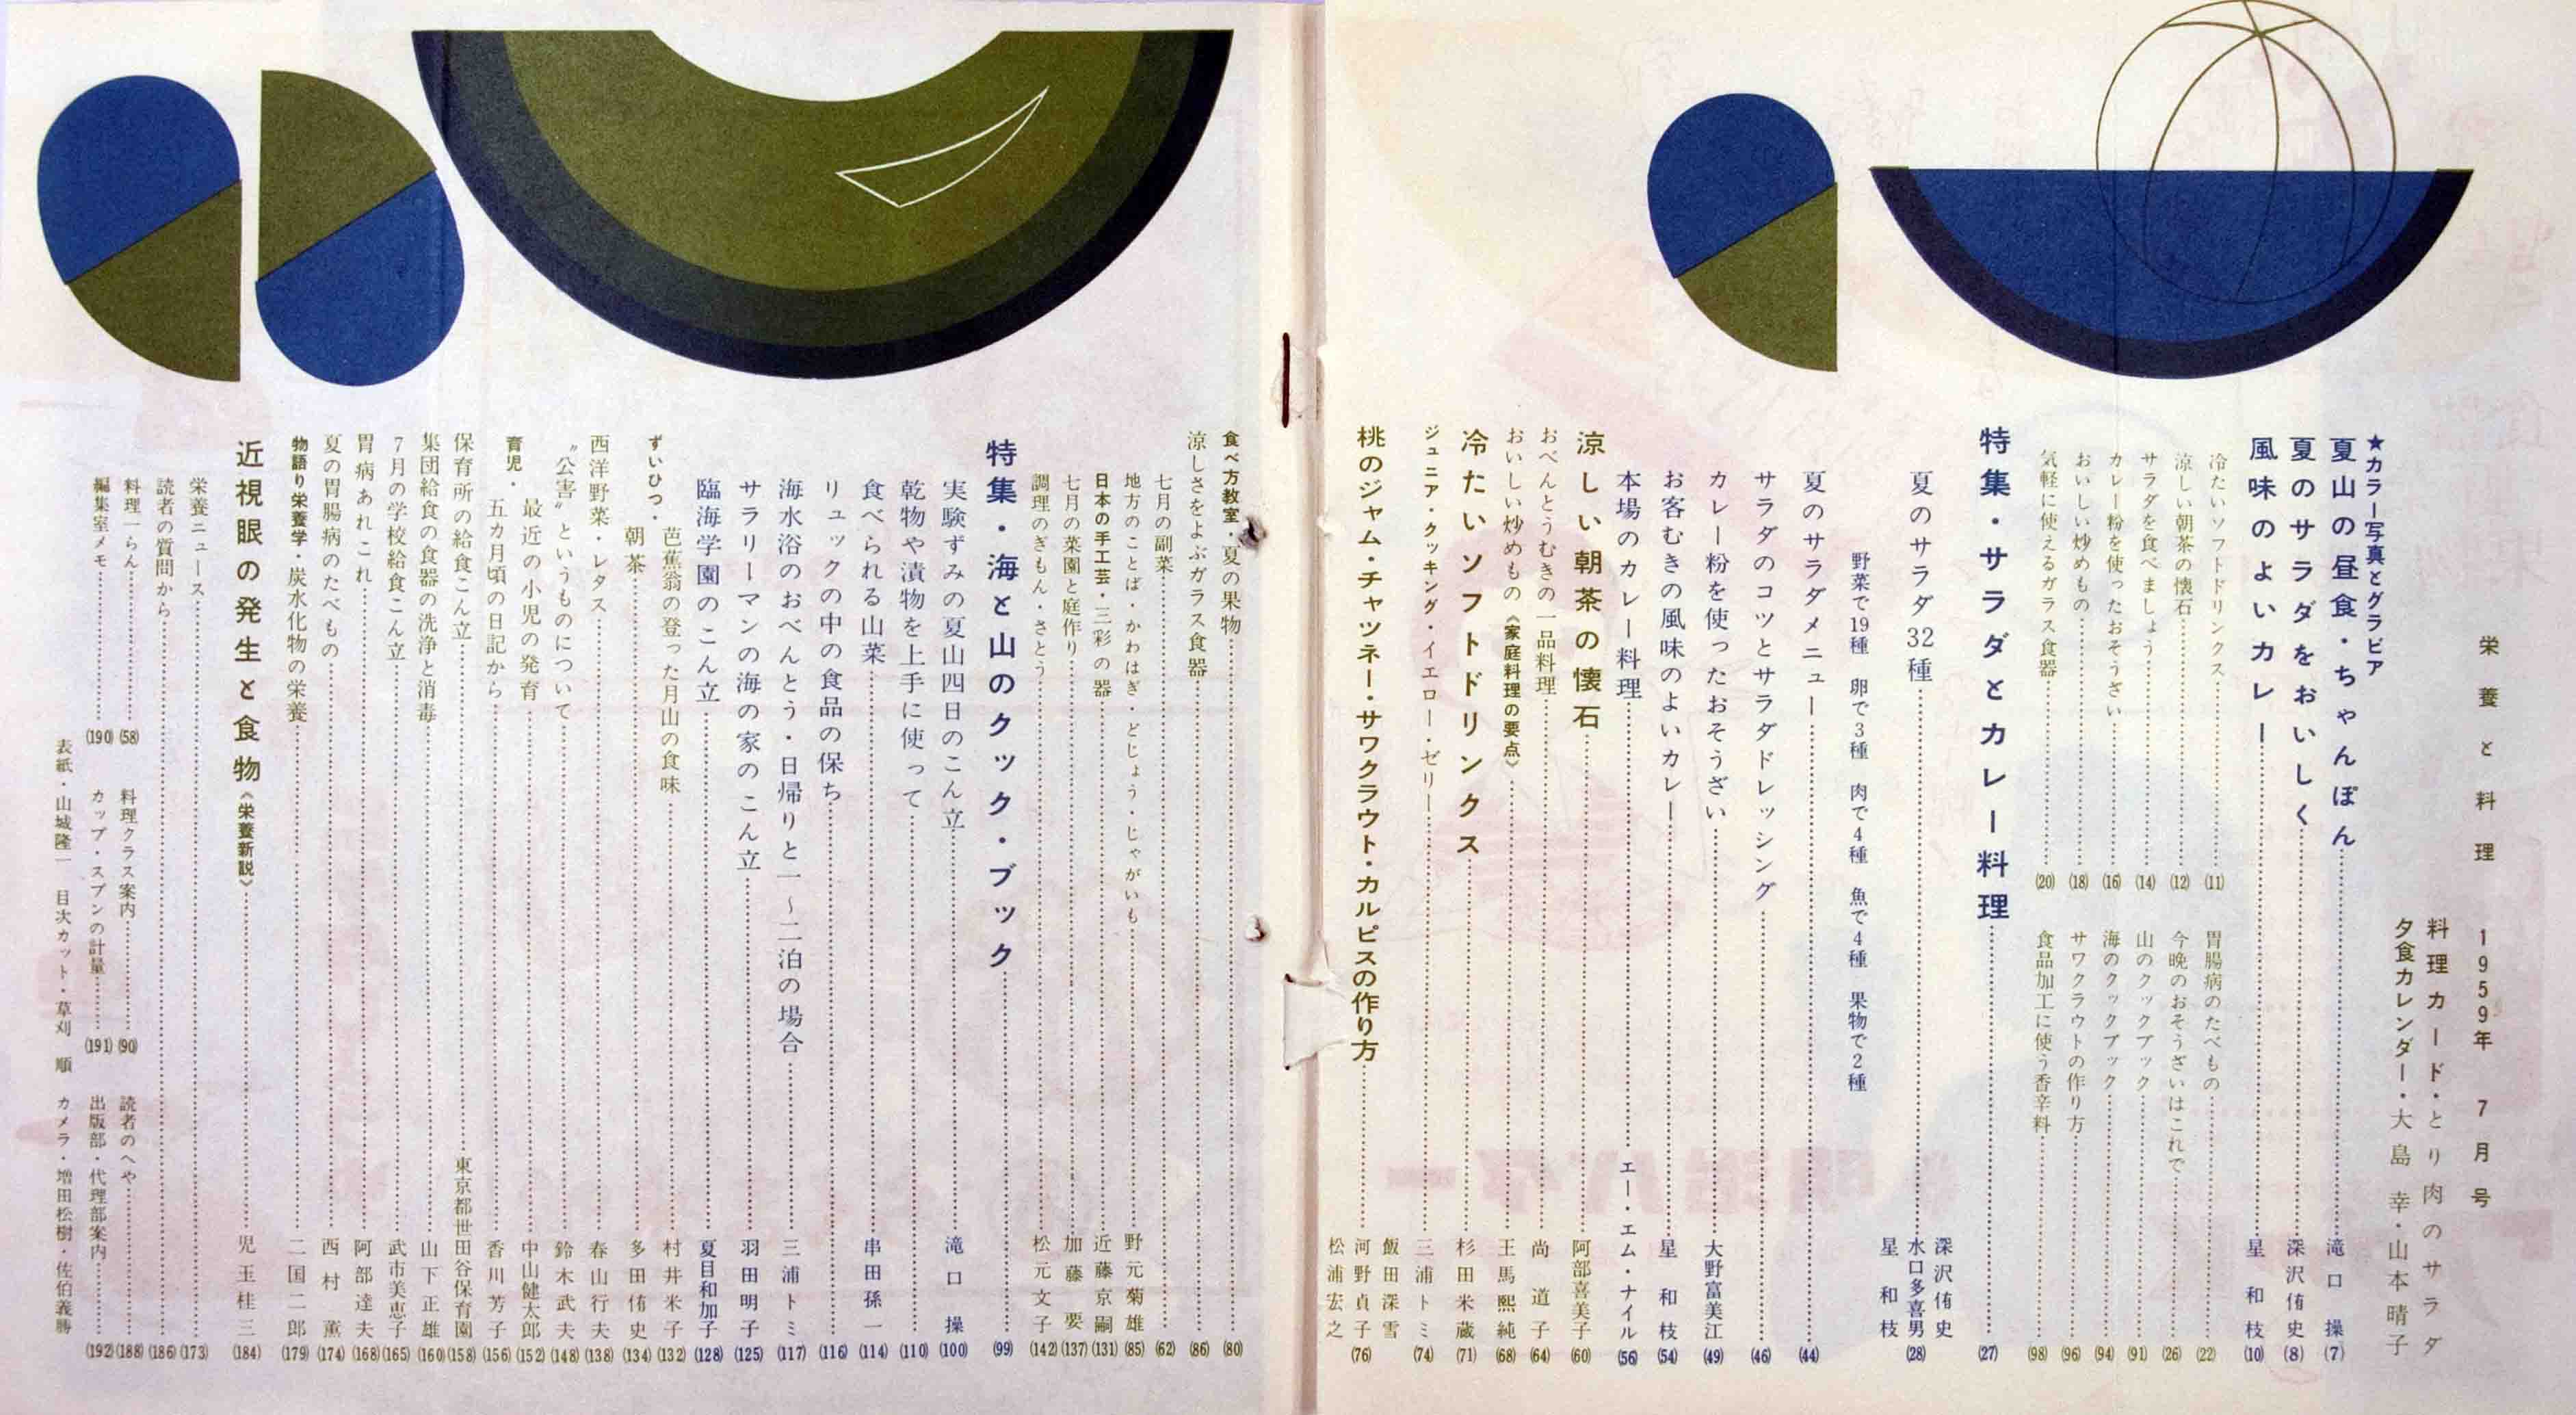 栄養と料理　1959年　7月号
料理カード・とり肉のサラダ
夕食カレンダー・大島　幸・山本晴子
★カラー写真とグラビア
夏山の昼食・ちゃんぽん……滝口　操(7)
夏のサラダをおいしく……深沢侑史(8)
風味のよいカレー……星　和枝(10)
冷たいソフトドリンクス……(11)
涼しい朝茶の懐石……(12)
サラダを食べましょう……(14)
カレー粉を使ったおそうざい……(16)
おいしい炒めもの……(18)
気軽に使えるガラス食器……(20)
胃腸病のたべもの……(22)
今晩のおそうざいはこれで……(26)
山のクックブック……(91)
海のクックブック……(94)
サワクラウトの作り方……(96)
食品加工に使う香辛料……(98)
特集・サラダとカレー料理……(27)
夏のサラダ32種……深沢侑史　水口多喜男　星　和枝(28)
野菜で19種　卵で3種　肉で4種　魚で4種　果物で2種
夏のサラダメニュー……(44)
サラダのコツとサラダドレッシング……(46)
カレー粉を使ったおそうざい……大野富美江(49)
お客むきの風味のよいカレー……星　和枝(54)
本場のカレー料理……エー・エム・ナイル(56)
涼しい朝茶の懐石……阿部喜美子(60)
おべんとうむきの一品料理……尚　道子(64)
おいしい炒めもの《家庭料理の要点》……王馬熙純(68)
冷たいソフトドリンクス……杉田米蔵(71)
ジュニア・クッキング・イエロー・ゼリー……三浦トミ(74)
桃のジャム・チャツネー・サワクラウト・カルピスの作り方……飯田深雪　河野貞子　松浦宏之(76)
食べ方教室・夏の果物……(80)
涼しさをよぶガラス食器……(86)
七月の副菜……(62)
地方のことば・かわはぎ・どじょう・じゃがいも……野元菊雄(85)
日本の手工芸・三彩の器……近藤京嗣(131)
七月の菜園と庭作り……加藤　要(137)
調理のぎもん・さとう……松元文子(142)
特集・海と山のクック・ブック……(99)
実験ずみの夏山四日のこん立……滝口　操(100)
乾物や漬物を上手に使って……(110)
食べられる山菜……串田孫一(114)
リュックの中の食品の保ち……(116)
海水浴のおべんとう・日帰りと一～二泊の場合……三浦トミ(117)
サラリーマンの海の家のこん立……羽田明子(125)
臨海学園のこん立……夏目和加子(128)
ずいひつ・芭蕉翁の登った月山の食味……村井米子(132)
朝茶……多田侑史(134)
西洋野菜・レタス……春山行夫(138)
“公害”というものについて……鈴木武夫(148)
育児・最近の小児の発育……中山健太郎(152)
五カ月頃の日記から……香川芳子(156)
保育所の給食こん立……東京都世田谷保育園(158)
集団給食の食器の洗浄と消毒……山下正雄(160)
7月の学校給食こん立……武市美恵子(165)
胃病あれこれ……阿部達夫(168)
夏の胃腸病のたべもの……西村　薫(174)
物語り栄養学・炭水化物の栄養……二国二郎(179)
近視眼の発生と食物《栄養新説》……児玉桂三(184)
栄養ニュース……(173)
読者の質問から……(186)
料理一らん……(58)　料理クラス案内……(90)　読者のへや……(188)
編集室メモ……(190)　カップ・スプンの計量……(191)　出版部・代理部案内……(192)
表紙・山城隆一　目次カット・草刈　順　カメラ・増田松樹・佐伯義勝